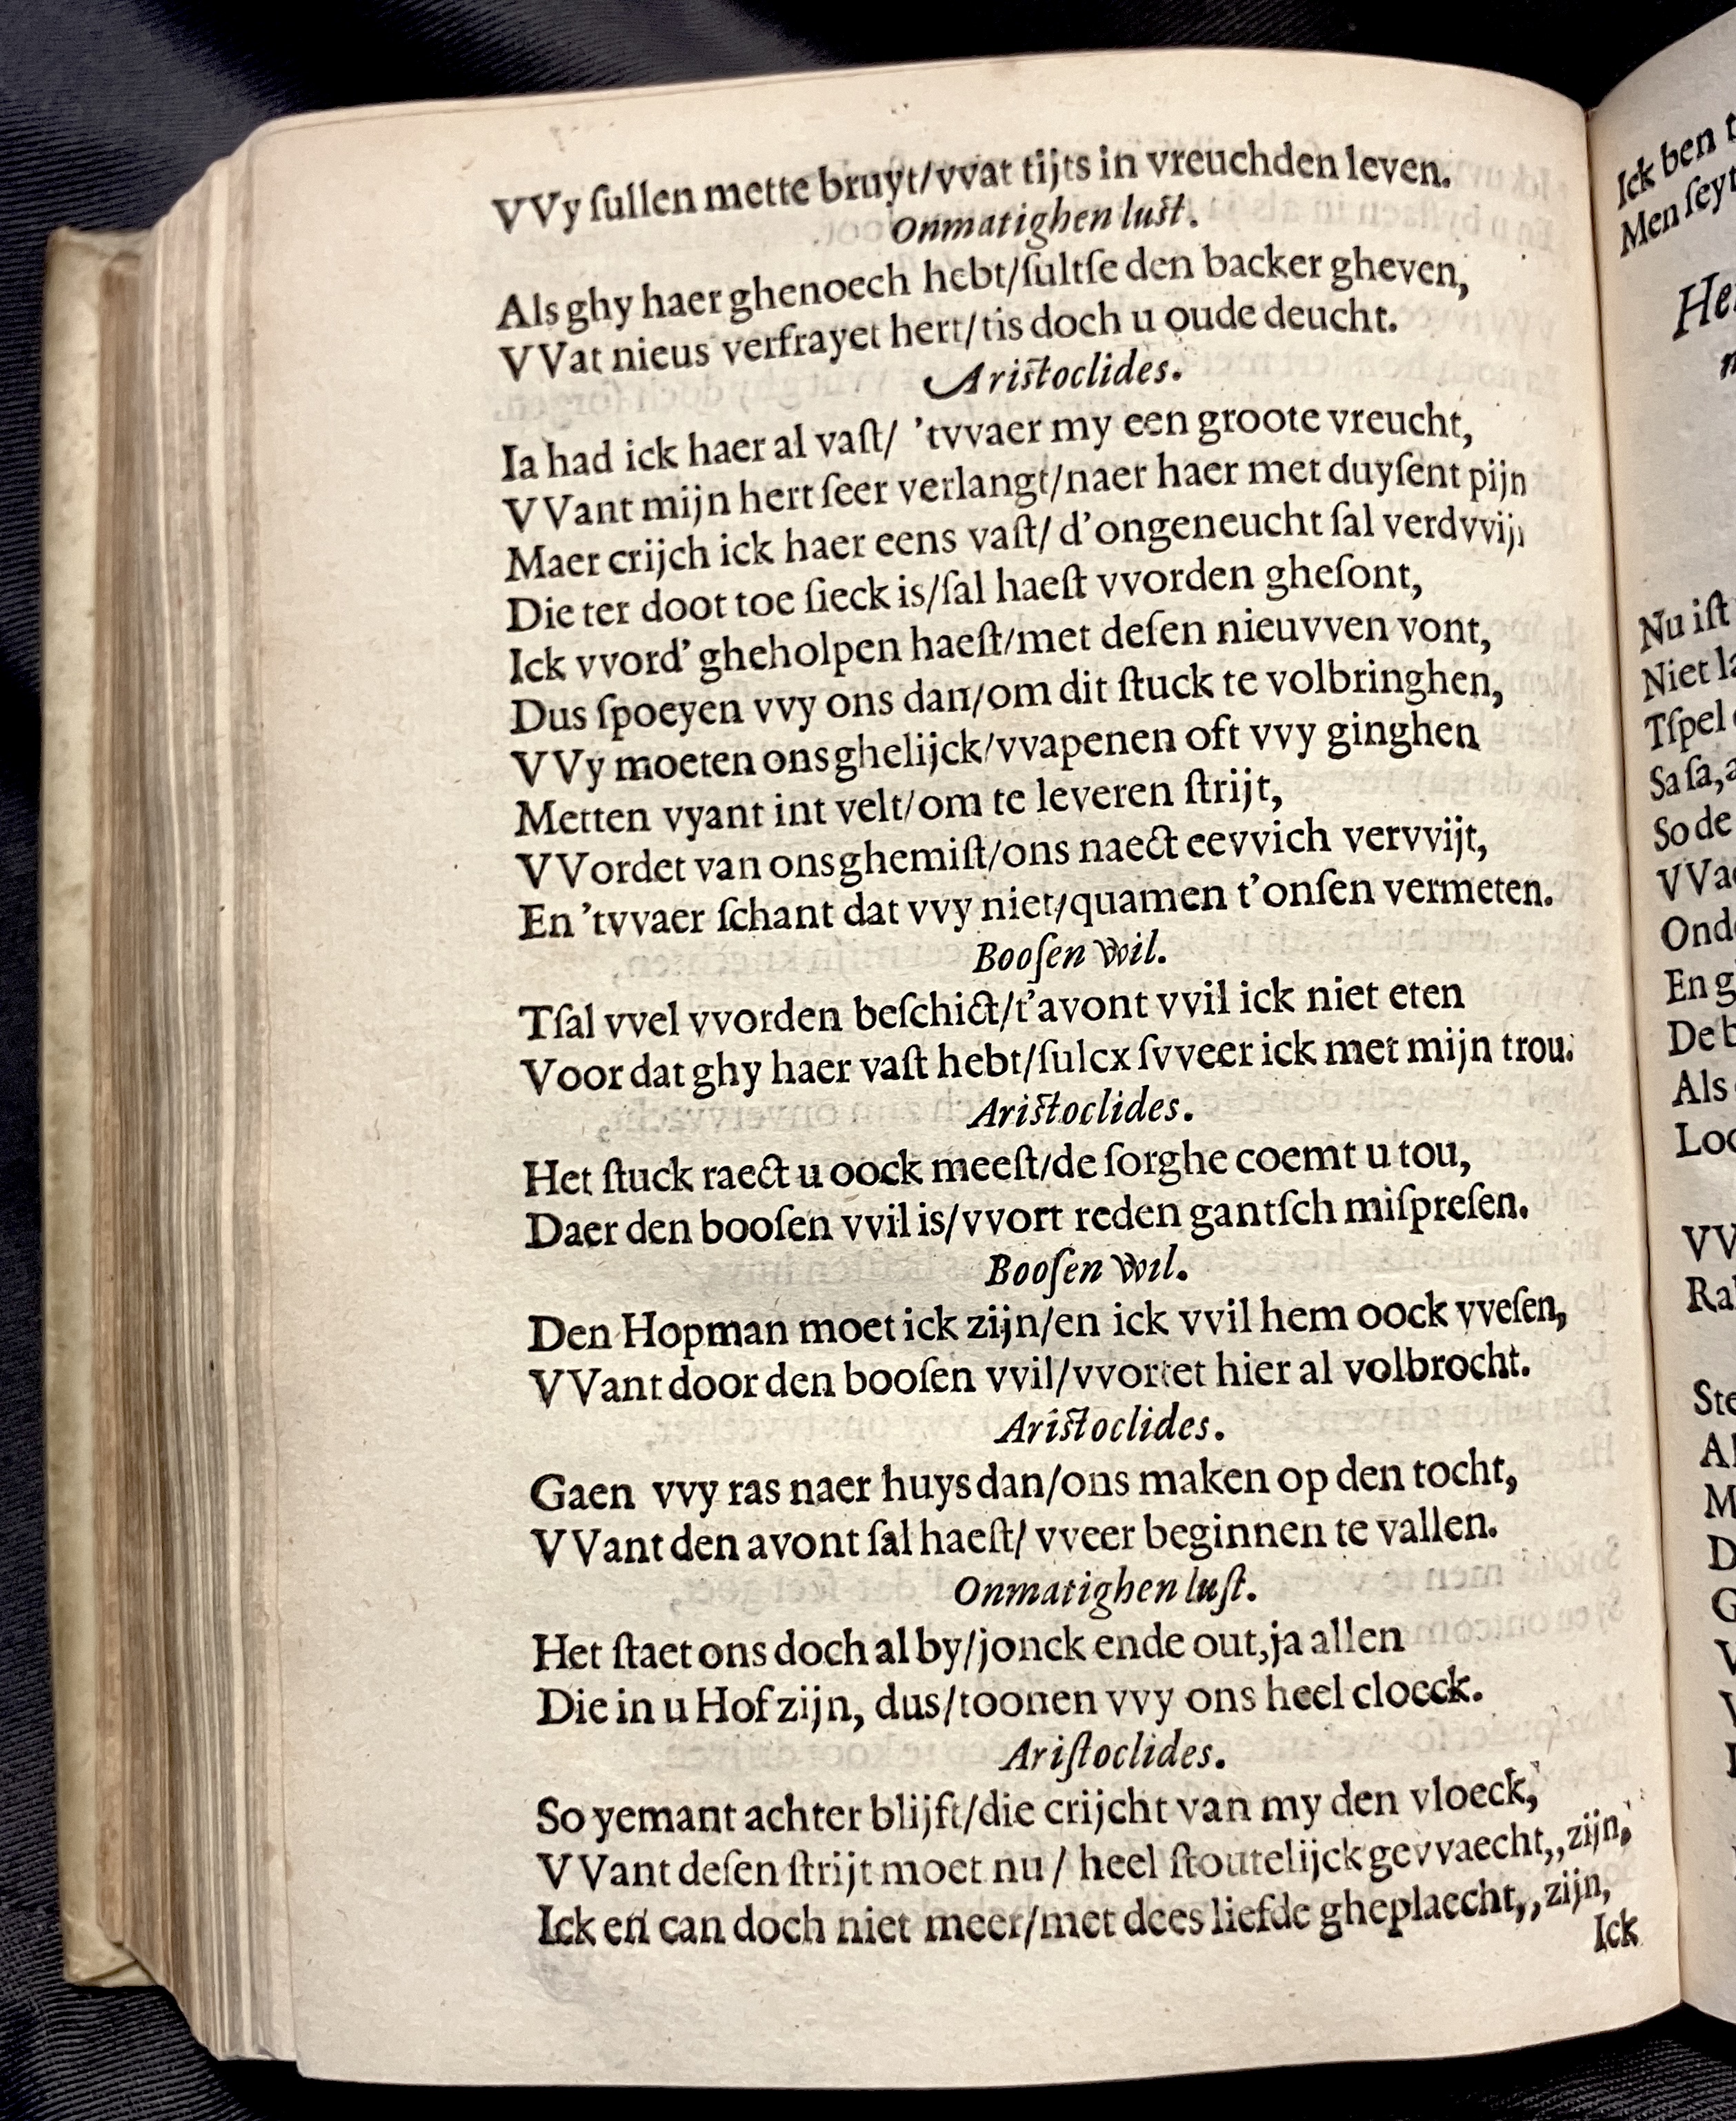 VVy ſullen mette bruyt/vvat tijts in vreuchden leven.
Onmatighen luſt.
Als ghy haer ghenoech hebt/ſultſe den backer gheven,
VVat nieus verfrayet hert/tis doch u oude deucht.
Ariſtoclides.
Ia had ick haer al vaſt/ 'tvvaer my een groote vreucht,
VVant mijn hert ſeer verlangt/naer haer met duyſent pijn
Maer crijch ick haer eens vaſt/ d'ongeneucht ſal verdvvij
Die ter doot toe ſieck is/ſal haeſt vvorden gheſont,
Ick vvord' gheholpen haeſt/met deſen nieuvven vont,
Dus ſpoeyen vvy ons dan/om dit ſtuck te volbringhen,
VVy moeten ons ghelijck/vvapenen oft vvy ginghen
Metten vyant int velt/om te leveren ſtrijt,
VVordet van ons ghemiſt/ons naect eevvich vervvijt,
En 'tvvaer ſchant dat vvy niet/quamen t'onſen vermeten.
Booſen wil.
Tſal vvel vvorden beſchict/t'avont vvil ick niet eten
Voor dat ghy haer vaſt hebt/ſulcx ſvveer ick met mijn trou.
Ariſtoclides.
Het ſtuck raect u oock meeſt/de ſorghe coemt u tou,
Daer den booſen vvil is/vvort reden gantſch miſpreſen.
Booſen wil.
Den Hopman moet ick zijn/en ick vvil hem oock vveſen,
VVant door den booſen vvil/vvortet hier al volbrocht.
Ariſtoclides.
Gaen vvy ras naer huys dan/ons maken op den tocht,
VVant den avont ſal haeſt/ vveer beginnen te vallen.
Onmatighen luſt.
Het ſtaet ons doch al by/jonck ende out,ja allen
Die in u Hof zijn, dus/toonen vvy ons heel cloeck.
Ariſtoclides.
So yemant achter blijft/die crijcht van my den vloeck,
VVant deſen ſtrijt moet nu/ heel ſtoutelijck gevvaecht,,zijn,
Ick en can doch niet meer/met dees liefde gheplaecht,,zijn,
Ick
Ick ben
Men ſeyt
Nu iſt
Niet
Tſpel
Sa ſa,
So de
En
Als